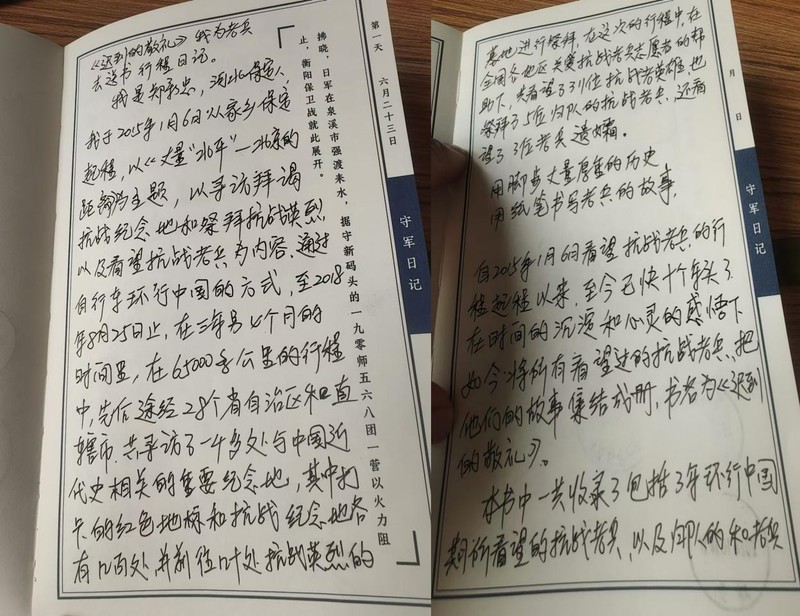 《迟到的敬礼》我为老兵
去送书行程日记。
我是郑承忠，河北保定人
我于2015年1月6日从家乡保定
起程，以《丈量“北平”—北京的
距离》为主题，以寻访拜谒
抗战纪念地和祭拜抗战英烈
以及看望抗战老兵为内容，通过
自行车环行中国的方式，至2018
年8月25日止，在三年另七个月的
时间里，在65000多公里的行程
中，先后途经28个省自治区和直
辖市。共寻访了一千多处与中国近
代史相关的重要纪念地，其中打
卡的红色地标和抗战纪念地各
有几百处，并前往几十处抗战英烈的
第一天 六月二十三日
拂晓，日军在泉溪市强渡耒水，据守新码头的一九零师五六八团一营以火力阻
止，衡阳保卫战就此展开。
守军日记
墓地进行祭拜，在这次的行程中，在
全国各地区关爱抗战老兵志愿者的帮
助下，共看望了331位抗战老英雄，也
祭拜了5位归队的抗战老兵，还看
望了3位老兵遗孀。
用脚步丈量厚重的历史
用纸笔书写老兵的故事，
自2015年1月6日看望抗战老兵的行
程起程以来，至今已快十个年头了
在时间的沉淀和心灵的感悟下
如今将所有看望过的抗战老兵，把
他们的故事集结成册，书名为《迟到
的敬礼》。
本书中一共收录了包括3年环行中国
期间所看望的抗战老兵，以及归队的和老兵
月 日
守军日记